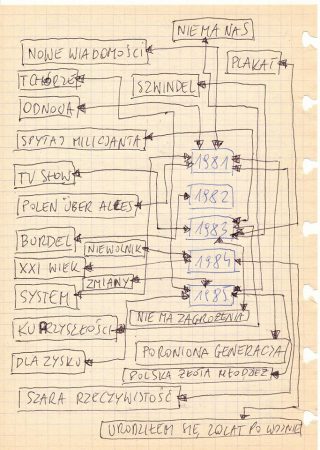 NIE MA NAS
NOWE WIADOMOŚCI
PLAKAT
TCHÓRZE
SZWINDEL
ODNOVA
SPYTAJ MILICJANTA
1981
TV SHOW
1982
POLEN ÜBER ALLES
1983
BURDEL
NIEWOLNIK
1984
XXI WIEK
ZMIANY
SYSTEM
1985
NIE MA ZAGROŻENIA
KU PRZYSZŁOŚCI
PORONIONA GENERACJA
DLA ZYSKU
POLSKA ZŁOTA MŁODZIEŻ
SZARA RZECZYWISTOŚĆ
URODZIŁEM SIĘ 20 LAT PO WOJNIE